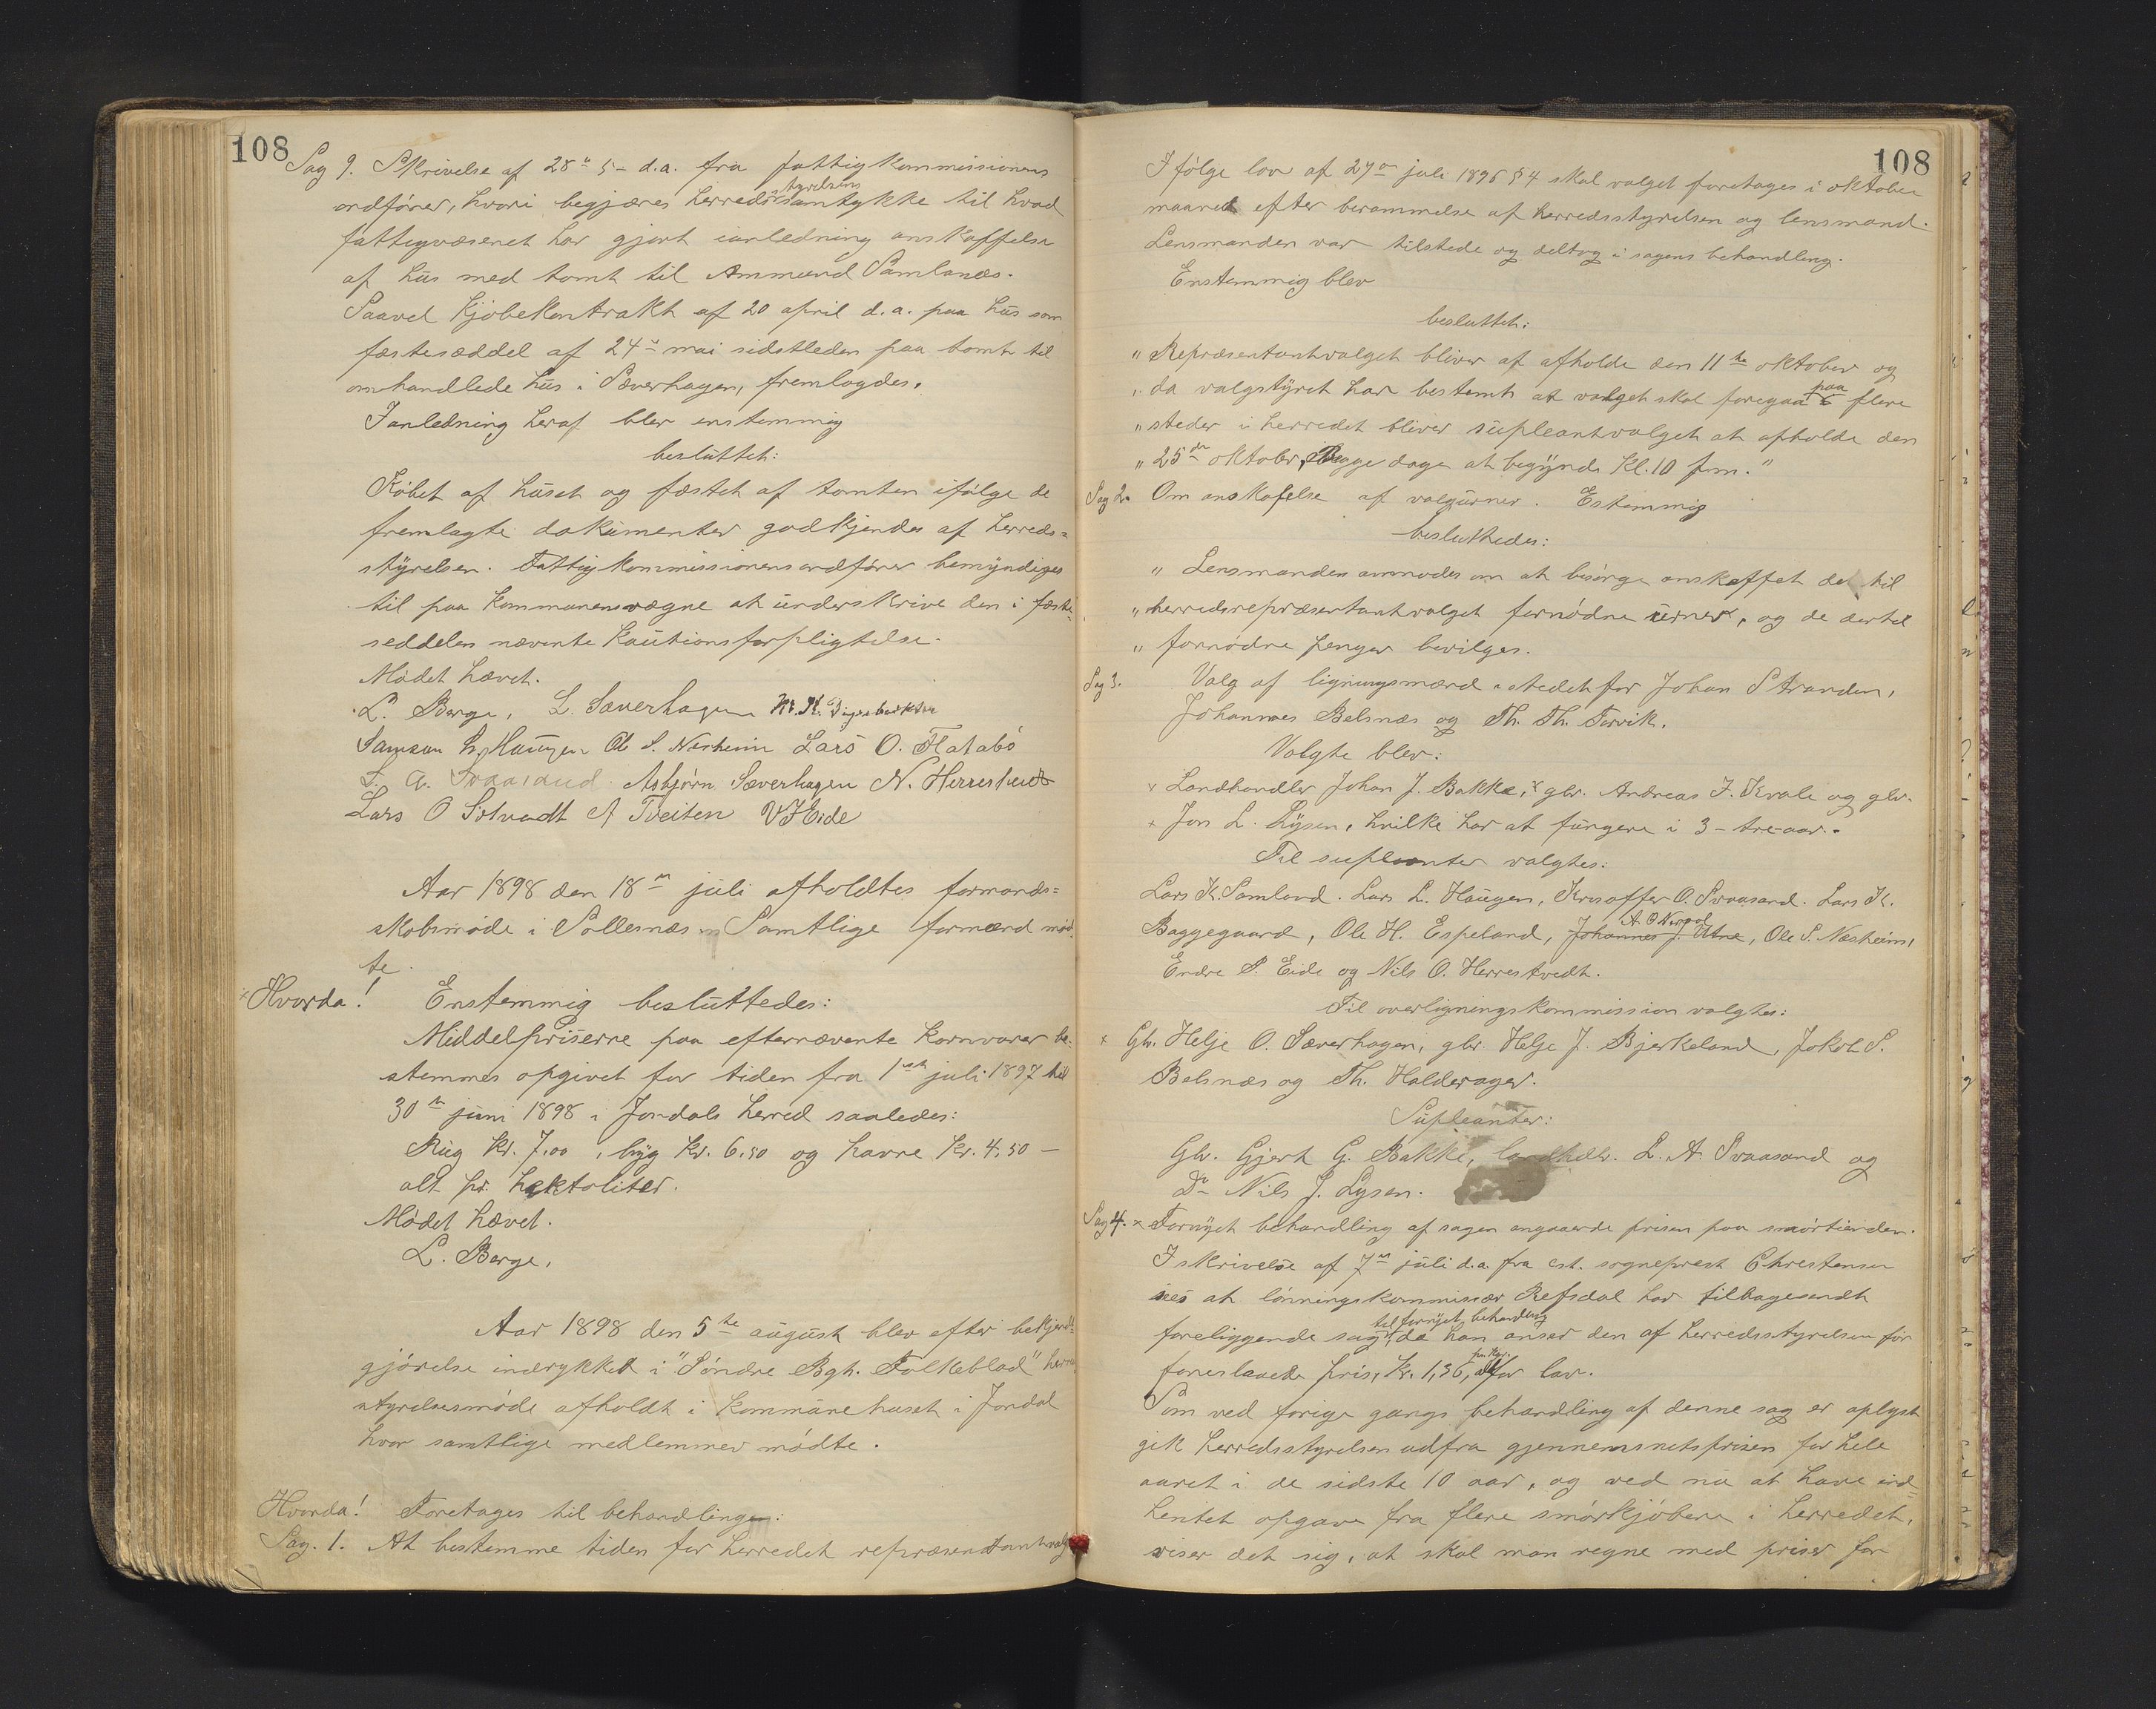 108
Sag 9. Skrivelse af 28 5- d.a. fra fattigkommissionens
ordfører, hvori begjæres herredsstyrelsens samtykke til hvad
fattigvæsenet har gjort ianledning anskaffelse
af hus med tomt til Ammund Samlanæs.
Saavel kjøbekontrakt af 20 april d.a. paa hus som
festeseddel af 24 mai sidstleden paa tomt til
omhandlede hus i Sæverhagen, fremlagdes.
Ianledning heraf blev enstemmig
besluttet:
Købet af huset og fæstet af tomten ifølge de
fremlagte dokumenter godkjendes af herreds=
styrelsen. Fattigkommissionens ordfører bemyndiges
til paa kommunens vegne at underskrive den i feste
seddelen nævnte kautionsforpligtelse.
Mødet hævet.
L. Berge, L. Sæverhagen
Samson L. Haugen Ol S. Næsheim Lars O. Flatabø
L. A. Svaasand Asbjørn Sæverhagen N. Herrestvedt
Lars O Solvedt A Tveiten VHEide
Aar 1898 den 18de juli afholdtes formands=
skabsmøde i Sollesnæs. Samtlige formænd mød
te.
Hvorda! Enstemmig besluttedes:
Middelpriserne paa efternævnte kornvarer be-
stemmes opgivet for tiden fra 1ste juli 1897 til
30te juni 1898 i Jondals herred saaledes:
Rug kr. 7.00, byg kr. 6.50 og havre kr. 4.50 -
alt pr. hektoliter.
Mødet hævet.
L. Berge,
Aar 1898 den 5te august blev efter bekjendt
gjørelse indrykket i "Søndre Bgh. Folkeblad" herreds
styrelsesmøde afholdt i kommunehuset i Jondal
hvor samtlige medlemmer mødte.
Hvorda! Foretages til behandling:
Sag. 1. At bestemme tiden for herredet repræsentantvalg
108
Ifølge lov af 27de juli 1896 § 4 skal valget foretages i oktober
maaned efter berammelse af herredsstyrelsen og lensmand.
Lensmanden var tilstede og deltog i sagens behandling.
Enstemmig blev
besluttet:
" Repræsentantvalget bliver af afholde den 11te oktober og
" da valgstyret har bestemt at valget skal foregaa paa flere
" steder i herredet bliver supleantvalget at afholde den
" 25de oktober, Begge dage at begynde kl. 10 fm."
Sag 2. Om anskafelse af valgurner. Estemmig
besluttedes:
" Lensmanden anmodes om at besørge anskaffet de til
" herredsrepræsentantvalget fornødne urner, og de dertil
" fornødne penger bevilges.
Sag 3. Valg af ligningsmænd istedet for Johan Stranden,
Johannes Belsnæs og Th. Th. Torvik.
Valgte blev:
x Landhandler Johan J. Bakke, x gbr. Andreas J. Kvale og gbr.
x Jon L. Lysen, hvilke har at fungere i 3 - tre aar.
Til supleanter valgtes:
Lars K. Samland. Lars L. Haugen, Kristoffer O. Svaasand. Lars K.
Baggegaard, Ole H. Espeland, Johannes J. Utne, Ole S. Næsheim,
Endre S. Eide og Nils O. Herrestvedt.
Til overligningskommission valgtes:
x Gbr. Helje O. Sæverhagen, gbr. Helje J. Bjerkeland, Jakob S.
Belsnæs og Th. Haldorager.
Supleanter:
Gbr. Gjert G. Bakke, landhdlr. L. A. Svaasand og
Do Nils J. Lysen.
Sag 4. x Fornyet behandling af sagen angaaende prisen paa smørtienden.
I skrivelse af 7de juli d.a. fra cst. sogneprest Christensen
sees at lønningskommissær Refsdal har tilbagesendt
foreliggende sag til fornyet behandling da han anser den af herredsstyrelsen før
foreslaaede pris, kr. 1,36, pr. kgr. for lav.
Som ved forige gangs behandling af denne sag er oplyst
gik herredsstyrelsen udfra gjennemsnitsprisen for hele
aaret i de sidste 10 aar, og ved nu at have ind=
hentet opgave fra flere smørkjøbere i herredet,
viser det sig, at skal man regne med priser for